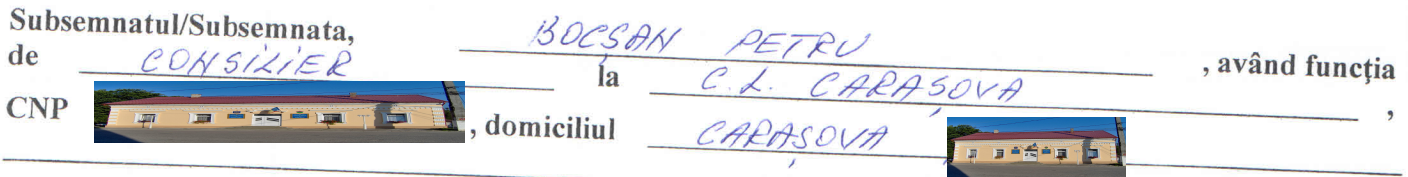 Subsemnatul/Subsemnata, BOCȘAN PETRU, având funcția
de CONSILIER la C.L. CARAȘOVA,
CNP , domiciliul CARAȘOVA